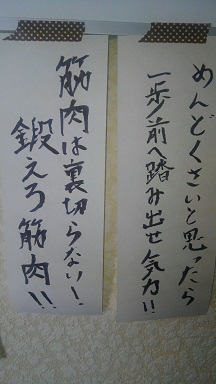 めんどくさいと思ったら
一歩前へ踏み出せ気力!!
筋肉は裏切らない!
鍛えろ筋肉!!